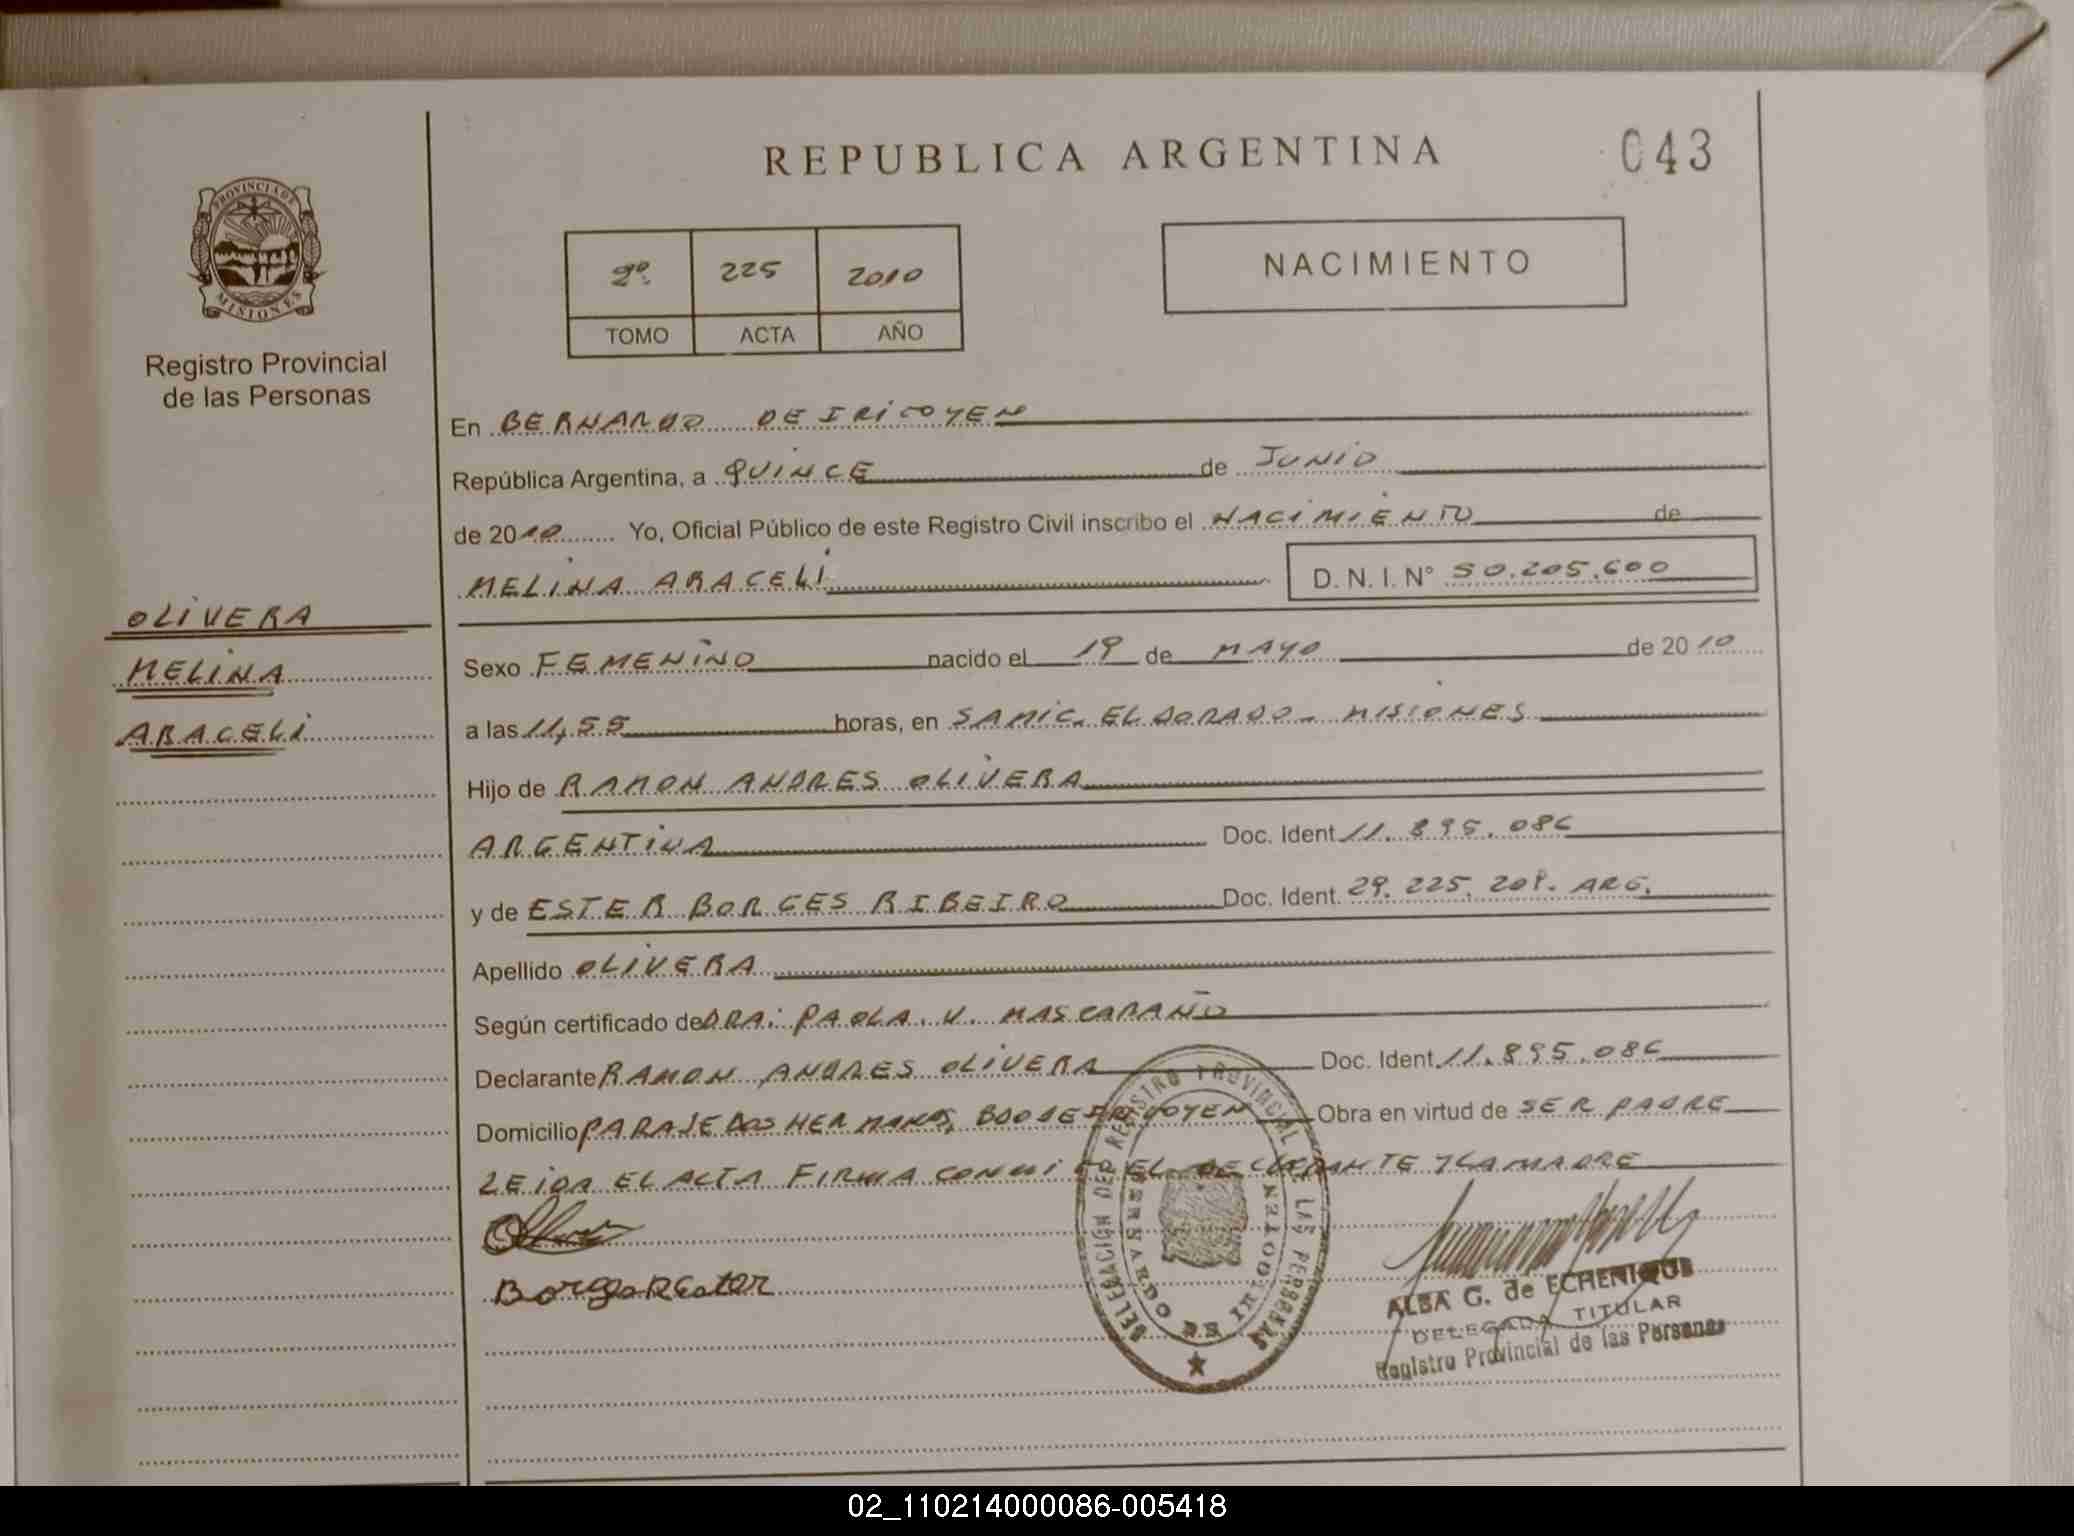 REPUBLICA ARGENTINA
043
PROVINCIA DE
MISIONES
Registro Provincial
de las Personas
2º 225 2010
TOMO ACTA AÑO
NACIMIENTO
En BERNARDO DE IRIGOYEN
República Argentina, a QUINCE de JUNIO
de 2010 Yo, Oficial Público de este Registro Civil inscribo el NACIMIENTO de
MELINA ARACELI D. N. I. N° 50.205.600
OLIVERA
MELINA
ARACELI
Sexo FEMENINO nacido el 19 de MAYO de 2010
a las 11,55 horas, en SAMIC. ELDORADO - MISIONES
Hijo de RAMON ANDRES OLIVERA
ARGENTINA Doc. Ident 11.895.086
y de ESTER BORGES RIBEIRO Doc. Ident. 29.225.209. ARG.
Apellido OLIVERA
Según certificado de DRA: PAOLA. V. MASCARAÑO
Declarante RAMON ANDRES OLIVERA Doc. Ident 11.895.086
Domicilio PARAJE DOS HERMANAS, BDO DE IRIGOYEN Obra en virtud de SER PADRE
LEIDA EL ACTA FIRMA CONMIGO EL DECLARANTE Y LA MADRE
DELEGACIÓN DEL REGISTRO PROVINCIAL DE LAS PERSONAS
BERNARDO DE IRIGOYEN
ALBA G. de ECHENIQUE
DELEGADA TITULAR
Registro Provincial de las Personas
02_110214000086-005418